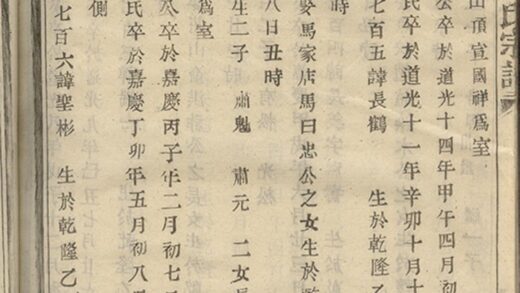 氏宗譜
山頂宣國祥爲室
公卒於道光十四年甲午四月初
氏卒於道光十一年辛卯十月十
七百五諱長鶴 生於乾隆乙
時
娶馬家店馬曰忠公之女生於
八日丑時
生二子 肅魁 肅元 二女長
爲室
公卒於嘉慶丙子年二月初七
氏卒於嘉慶丁卯年五月初八
側
七百六諱聖彬 生於乾隆乙